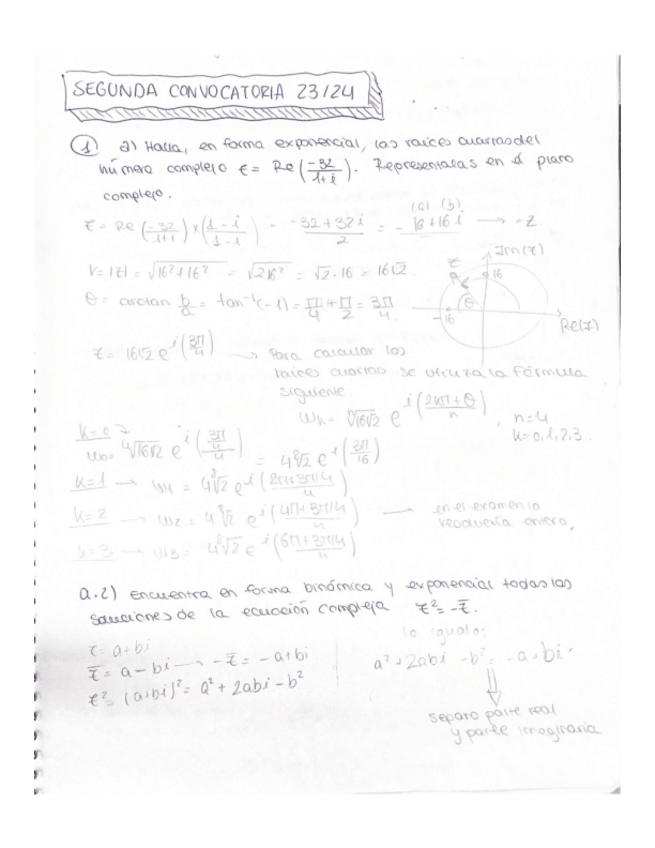 SEGUNDA CONVOCATORIA 23/24
① a) Halla, en forma exponencial, las raíces cuartas del
número complejo z = Re(-32/1+i). Representalas en el plano
complejo.
(a) (b)
z = Re(-32/1+i) x (1-i/1-i) = -32+32i/2 = -16+16i → z
r = |z| = √16²+16² = √2·16² = √2·16 = 16√2
θ = arctan b/a = tan⁻¹(-1) = π/4 + π/2 = 3π/4.
Im(z)
z
16
θ
-16
Re(z)
z = 16√2 e^i(3π/4) → Para calcular las
raíces cuartas se utiliza la fórmula
siguiente
wk = ⁿ√16√2 e^i(2kπ+θ/n), n=4
k=0,1,2,3..
k=0
w0 = ⁴√16√2 e^i(3π/4/4) = 4⁸√2 e^i(3π/16)
k=1 → w1 = 4⁸√2 e^i(2π+3π/4/4)
k=2 → w2 = 4⁸√2 e^i(4π+3π/4/4) → en el examen lo
resolvería entero,
k=3 → w3 = 4⁸√2 e^i(6π+3π/4/4)
a.2) Encuentra en forma binómica y exponencial todas las
soluciones de la ecuación compleja z² = -z̄.
z = a+bi
z̄ = a-bi → -z̄ = -a+bi
z² = (a+bi)² = a²+2abi-b²
lo igualo:
a²+2abi-b² = -a+bi
⇓
separo parte real
y parte imaginaria